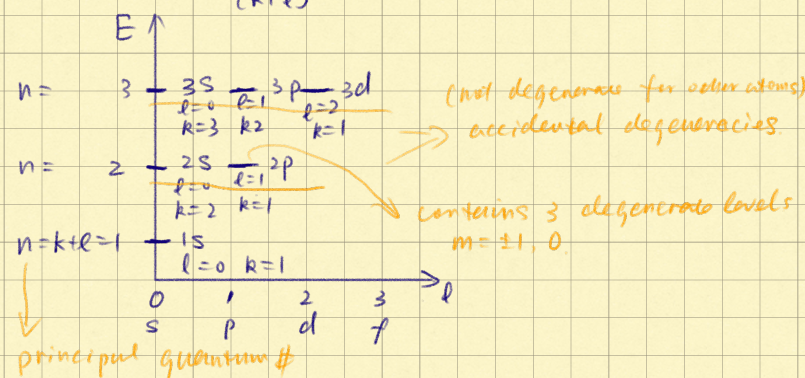 (k+l)
E
n= 3 3s 3p 3d (not degenerate for other atoms)
l=0 l=1 l=2 accidental degeneracies.
k=3 k2 k=1
n= 2 2s 2p
l=0 l=1
k=2 k=1 contains 3 degenerate levels
n=k+l=1 1s m=±1, 0
l=0 k=1
0 1 2 3 l
s p d f
principal quantum #